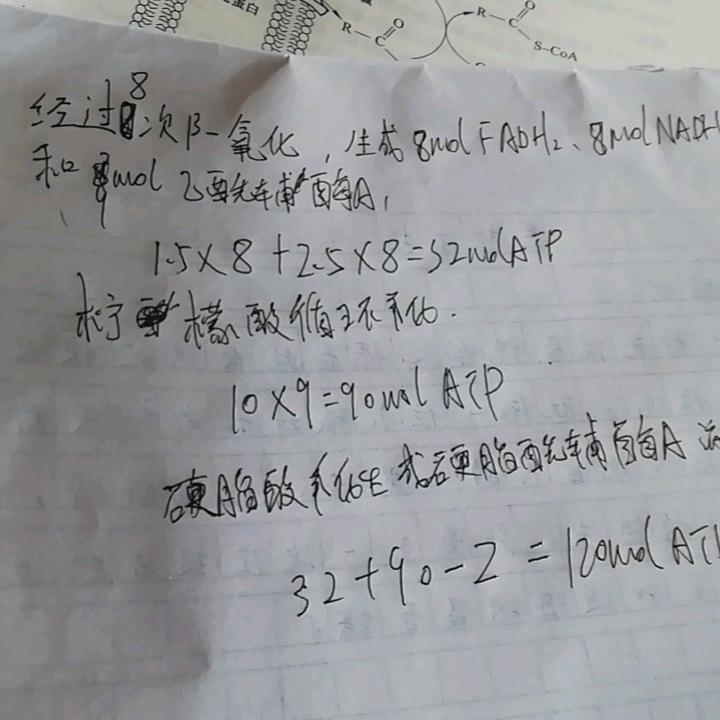 蛋白
R-C
O
R-C
O
S-CoA
经过8次β-氧化，生成8molFADH₂、8molNADH
和9mol乙酰辅酶A，
1.5×8+2.5×8=32molATP
柠檬酸循环氧化.
10×9=90molATP
硬脂酸氧化生成硬脂酰辅酶A
32+90-2=120molATP